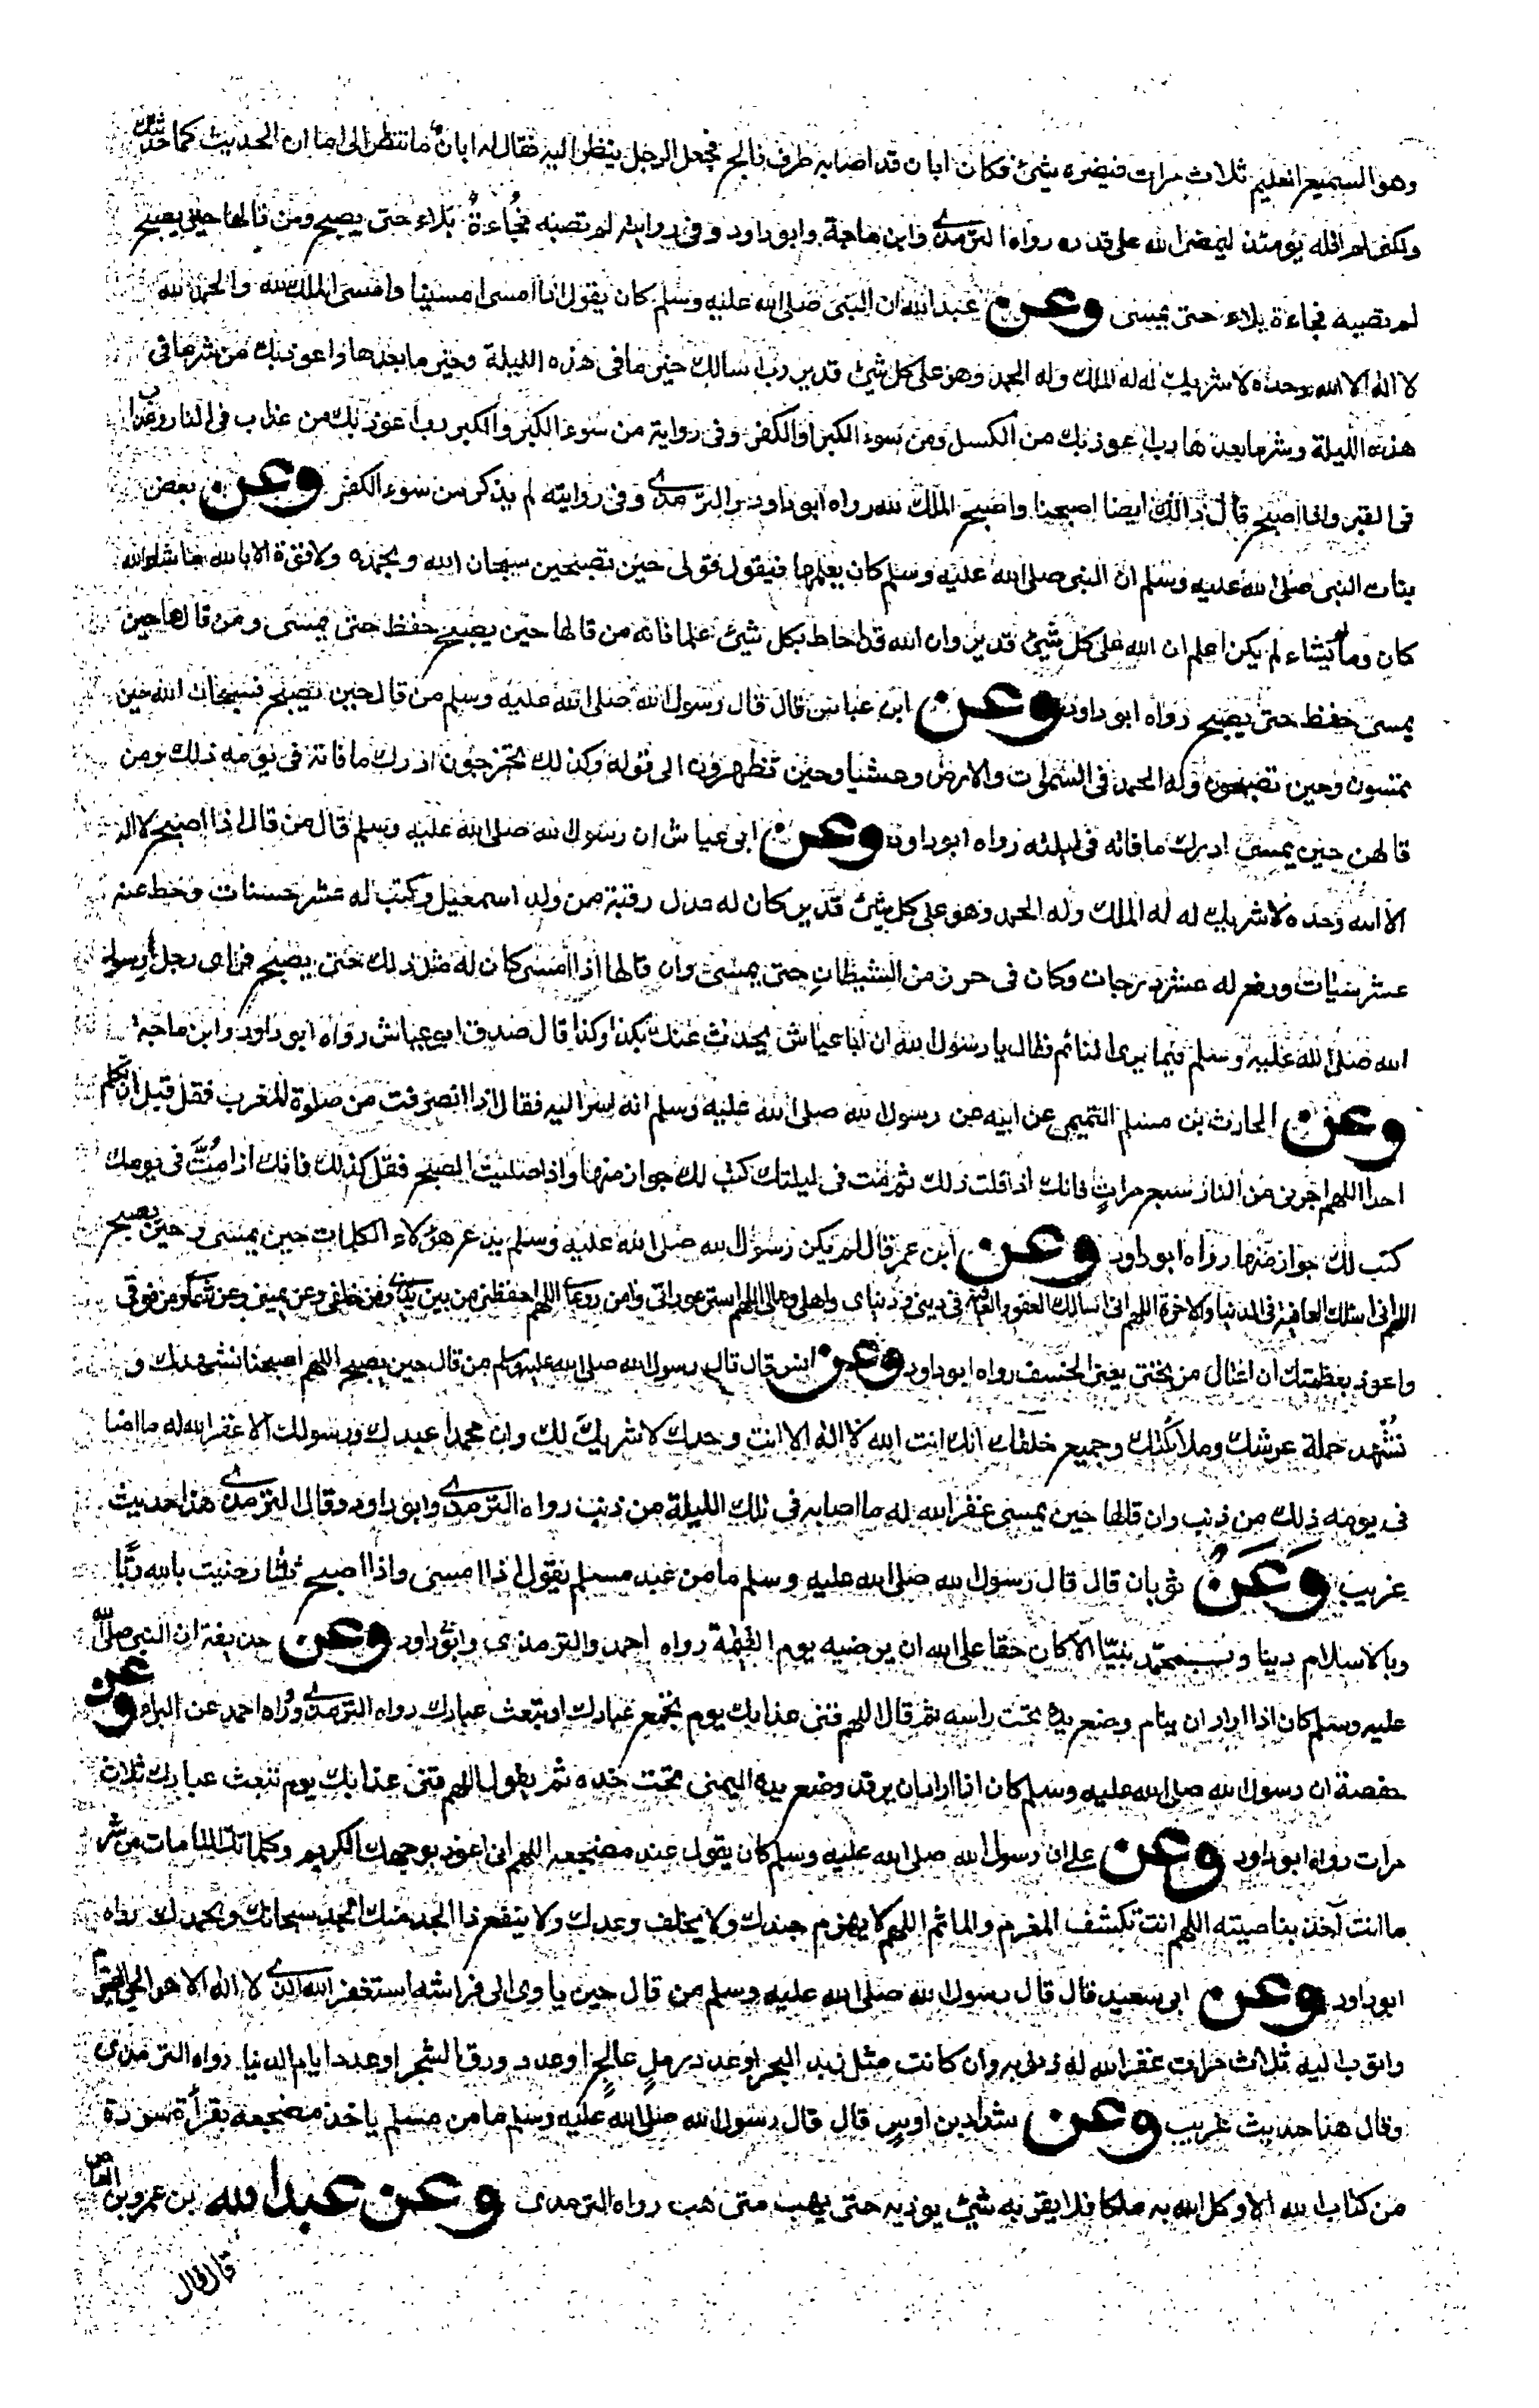 وهو السميع العليم ثلاث مرات فيضره شيئ فكان ابان قد اصابه طرف فالج فجعل الرجل ينظر اليه فقال له ابان ما تنظر الى اما ان الحديث كما حدثتك
ولكنى لم اقله يومئذ ليمضى الله على قدره رواه الترمذى وابن ماجة وابو داود وفى روايته لم تصبه فجاءة بلاء حتى يصبح ومن قالها حين يصبح
لم تصبه فجاءة بلاء حتى يمسى وعن عبد الله ان النبى صلى الله عليه وسلم كان يقول اذا امسى امسينا وامسى الملك لله والحمد لله
لا اله الا الله وحده لا شريك له له الملك وله الحمد وهو على كل شيئ قدير رب اسالك خير ما فى هذه الليلة وخير ما بعدها واعوذ بك من شر ما فى
هذه الليلة وشر ما بعدها رب اعوذ بك من الكسل ومن سوء الكبر او الكفر وفى رواية من سوء الكبر والكبر رب اعوذ بك من عذاب فى النار وعذاب
فى القبر واذا اصبح قال ذالك ايضا اصبحنا واصبح الملك لله رواه ابو داود والترمذى وفى روايته لم يذكر من سوء الكفر وعن بعض
بنات النبى صلى الله عليه وسلم ان النبى صلى الله عليه وسلم كان يعلمها فيقول قولى حين تصبحين سبحان الله وبحمده ولا قوة الا بالله ما شاء الله
كان وما لم يشاء لم يكن اعلم ان الله على كل شيئ قدير وان الله قد احاط بكل شيئ علما فانه من قالها حين يصبح حفظ حتى يمسى ومن قالها حين
يمسى حفظ حتى يصبح رواه ابو داود وعن ابن عباس قال قال رسول الله صلى الله عليه وسلم من قال حين يصبح فسبحان الله حين
تمسون وحين تصبحون وله الحمد فى السموات والارض وعشيا وحين تظهرون الى قوله وكذلك تخرجون ادرك ما فاته فى يومه ذلك ومن
قالهن حين يمسى ادرك ما فاته فى ليلته رواه ابو داود وعن ابى عياش ان رسول الله صلى الله عليه وسلم قال من قال اذا اصبح لا اله
الا الله وحده لا شريك له له الملك وله الحمد وهو على كل شيئ قدير كان له عدل رقبة من ولد اسمعيل وكتب له عشر حسنات وحط عنه
عشر سيئات ورفع له عشر درجات وكان فى حرز من الشيطان حتى يمسى وان قالها اذا امسى كان له مثل ذلك حتى يصبح فراى رجل رسول
الله صلى الله عليه وسلم فيما يرى النائم فقال يا رسول الله ان ابا عياش يحدث عنك بكذا وكذا قال صدق ابو عياش رواه ابو داود وابن ماجة
وعن الحارث بن مسلم التميمى عن ابيه عن رسول الله صلى الله عليه وسلم انه اسر اليه فقال اذا انصرفت من صلوة المغرب فقل قبل ان تكلم
احدا اللهم اجرنى من النار سبع مرات فانك اذا قلت ذلك ثم مت فى ليلتك كتب لك جواز منها واذا صليت الصبح فقل كذلك فانك اذا مت فى يومك
كتب لك جواز منها رواه ابو داود وعن ابن عمر قال لم يكن رسول الله صلى الله عليه وسلم يدع هؤلاء الكلمات حين يمسى وحين يصبح
اللهم انى اسئلك العافية فى الدنيا والاخرة اللهم انى اسالك العفو والعافية فى دينى ودنياى واهلى ومالى اللهم استر عوراتى وامن روعاتى اللهم احفظنى من بين يدى ومن خلفى وعن يمينى وعن شمالى ومن فوقى
واعوذ بعظمتك ان اغتال من تحتى يعنى الخسف رواه ابو داود وعن انس قال قال رسول الله صلى الله عليه وسلم من قال حين يصبح اللهم اصبحنا نشهدك و
نشهد حملة عرشك وملائكتك وجميع خلقك انك انت الله لا اله الا انت وحدك لا شريك لك وان محمدا عبدك ورسولك الا غفر الله له ما اصا
فى يومه ذلك من ذنب وان قالها حين يمسى غفر الله له ما اصابه فى تلك الليلة من ذنب رواه الترمذى وابو داود وقال الترمذى هذا حديث
غريب وعن ثوبان قال قال رسول الله صلى الله عليه وسلم ما من عبد مسلم يقول اذا امسى واذا اصبح ثلثا رضيت بالله ربا
وبالاسلام دينا وبمحمد نبيا الا كان حقا على الله ان يرضيه يوم القيمة رواه احمد والترمذى وابو داود وعن حذيفة ان النبى صلى الله
عليه وسلم كان اذا اراد ان ينام وضع يده تحت راسه ثم قال اللهم قنى عذابك يوم تجمع عبادك او تبعث عبادك رواه الترمذى ورواه احمد عن البراء وعن
حفصة ان رسول الله صلى الله عليه وسلم كان اذا اراد ان يرقد وضع يده اليمنى تحت خده ثم يقول اللهم قنى عذابك يوم تبعث عبادك ثلاث
مرات رواه ابو داود وعن على ان رسول الله صلى الله عليه وسلم كان يقول عند مضجعه اللهم انى اعوذ بوجهك الكريم وكلماتك التامات من شر
ما انت آخذ بناصيته اللهم انت تكشف المغرم والماثم اللهم لا يهزم جندك ولا يخلف وعدك ولا ينفع ذا الجد منك الجد سبحانك وبحمدك رواه
ابو داود وعن ابى سعيد قال قال رسول الله صلى الله عليه وسلم من قال حين ياوى الى فراشه استغفر الله الذى لا اله الا هو الحى القيوم
واتوب اليه ثلاث مرات غفر الله له ذنوبه وان كانت مثل زبد البحر او عدد رمل عالج او عدد ورق الشجر او عدد ايام الدنيا رواه الترمذى
وقال هذا حديث غريب وعن شداد بن اوس قال قال رسول الله صلى الله عليه وسلم ما من مسلم ياخذ مضجعه بقرأة سورة
من كتاب الله الا وكل الله به ملكا فلا يقربه شيئ يوذيه حتى يهب متى هب رواه الترمذى وعن عبد الله بن عمرو بن العاص
قال قال